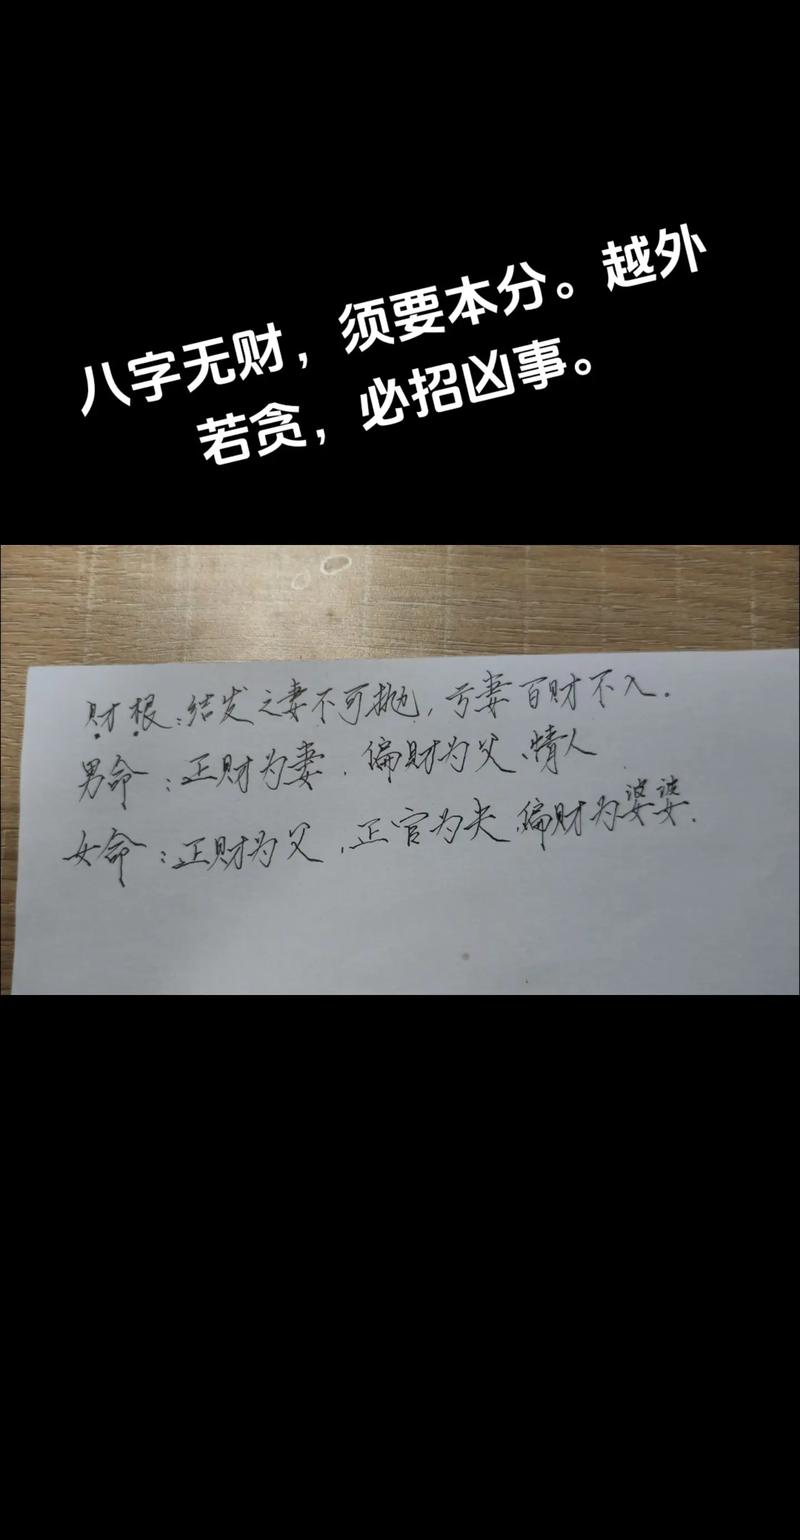 八字无财，须要本分。越外
若贪，必招凶事。
财根：结发之妻不可抛，亏妻百财不入.
男命：正财为妻.偏财为父、情人
女命：正财为父，正官为夫，偏财为婆婆.